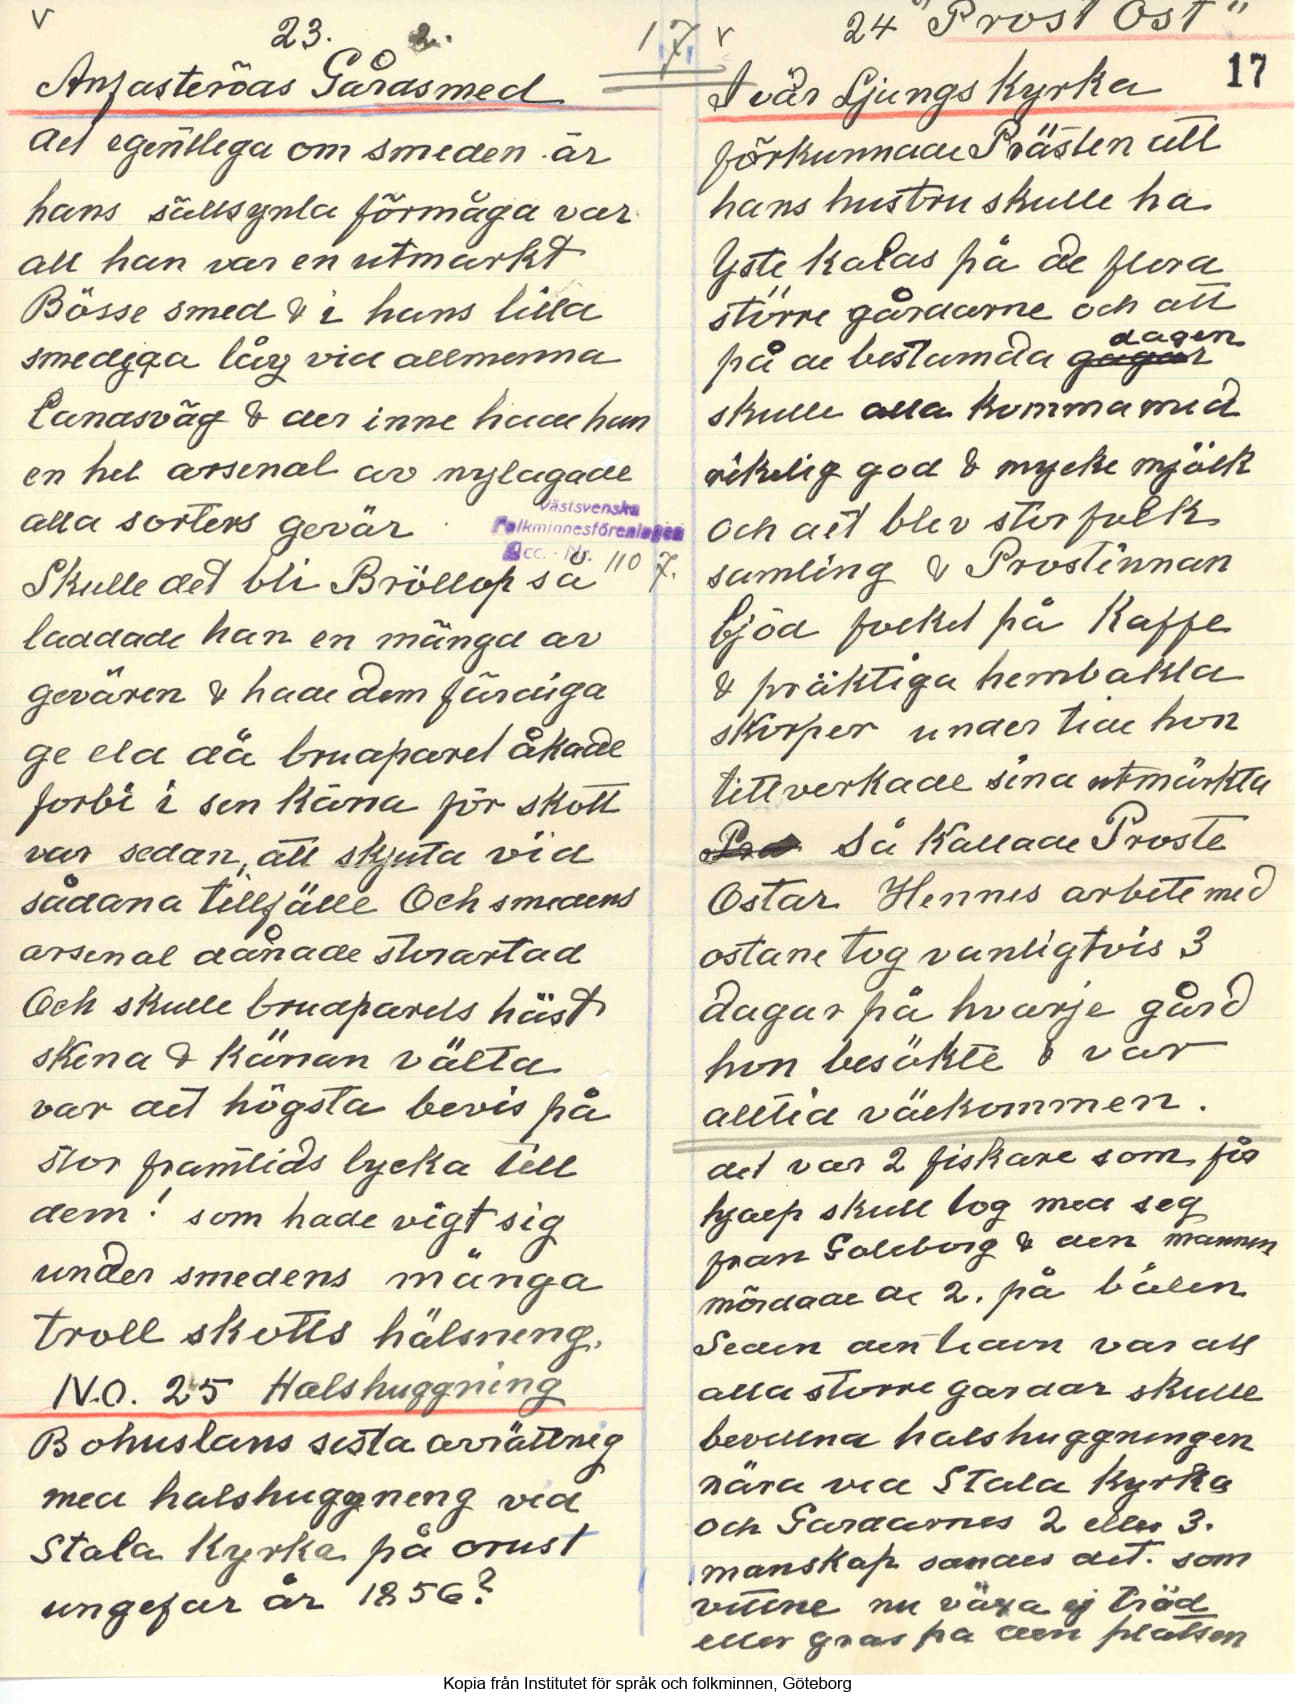 23.
Anfasteröds Gårdsmed
det egentlega om smeden är
hans sällsynta förmåga var
att han var en utmarkt
Bösse smed & i hans lilla
smedja låg vid allmenna
Landsväg & der inne hade han
en hel arsenal av nylagade
alla sorters gevär
Skulle det bli Bröllop så
laddade han en mängd av
gevären & hade dem färdiga
ge eld då brudparet åkade
forbi i sen Kärra för skott
var sedan, att skjuta vid
sådana tillfälle Och smedens
arsenal dånade storartad
Och skulle brudparets häst
skena & Kärran välta
var det högsta bevis på
stor framtids lycka till
dem! som hade vigt sig
under smedens många
troll skotts hälsneng.
N.O. 25 Halshuggning
Bohuslans sista avrättneg
med halshuggneng ved
Stala Kyrka på orust
ungefar år 1856?
Västsvenska
Folkminnesföreningen
Acc. - Nr. 1107.
17
24 "Prost Ost"
17
I vår Ljungs Kyrka
förkunnade Prästen att
hans hustru skulle ha
Yste kalas på de flera
större gårdarne och att
på de bestamda dagen
skulle alla komma med
rikelig god & mycke mjölk
och det blev stor folk
samling & Prostinnan
bjöd folket på Kaffe
& präktiga hembakta
skorper under tide hon
tillverkade sina utmärkta
Så Kallade Proste
Ostar Hennes arbete med
ostane tog vanligtvis 3
dagar på hvarje gård
hon besökte & var
alltid välkommen.
det var 2 fiskare som för
hjaelp skull tog med seg
fran Goteborg & den mannen
mördade de 2. på båten
Seden den tiden var att
alla storre gardar skulle
bevittna halshuggningen
nära ved Stala Kyrka
och Gardarnes 2 eller 3.
manskap sandes det. som
vittne nu växa ej träd
eller gras pa den platsen
Kopia från Institutet för språk och folkminnen, Göteborg